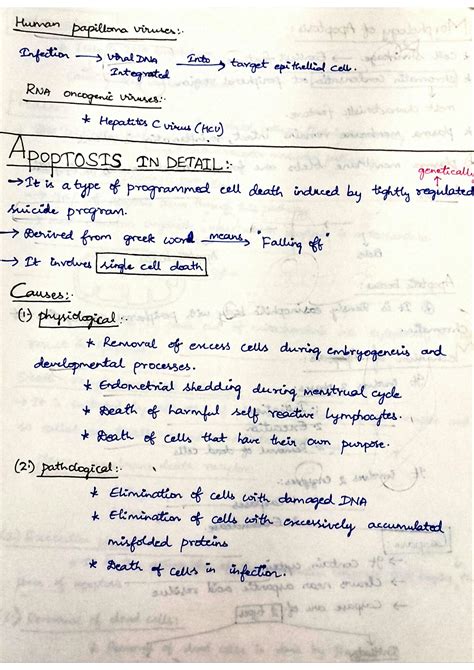 Human papilloma viruses:.
Infection → Viral DNA Integrated Into → target epithelial cell.
RNA oncogenic viruses:.
* Hepatitis C virus (HCV)
APOPTOSIS IN DETAIL:.
genetically
→ It is a type of programmed cell death induced by tightly regulated
suicide program.
→ Derived from greek word means → "Falling off"
→ It involves single cell death
Causes:.
(1) physiological:.
* Removal of excess cells during embryogenesis and
developmental processes.
* Endometrial shedding during menstrual cycle
* Death of harmful self reactive lymphocytes.
* Death of cells that have their own purpose.
(2) pathological:.
* Elimination of cells with damaged DNA
* Elimination of cells with excessively accumulated
misfolded proteins
* Death of cells in infection.